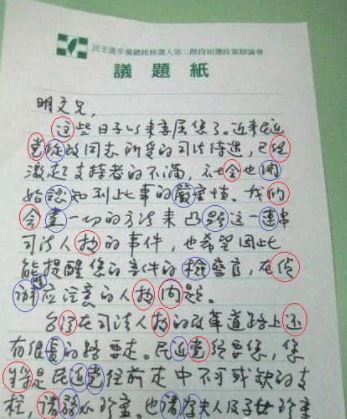 民主進步黨總統候選人第二階段初選政策辯論會
議題紙
明文兄,
這些日子以來委屈您了。近來民進
黨從政同志所受的司法待遇,已經
激起支持者的不滿,社會也開
始認知到此事的嚴重性。我們
會盡一切的方法來凸顯這一連串
司法人權的事件,也希望因此
能提醒您的案件的檢察官,在偵
辦應注意的人權問題。
台灣在司法人權的改革道路上還
有很長的路要走。民進黨需要您,您
將是民進黨往前走中不可或缺的支
柱,請務必珍重。也請